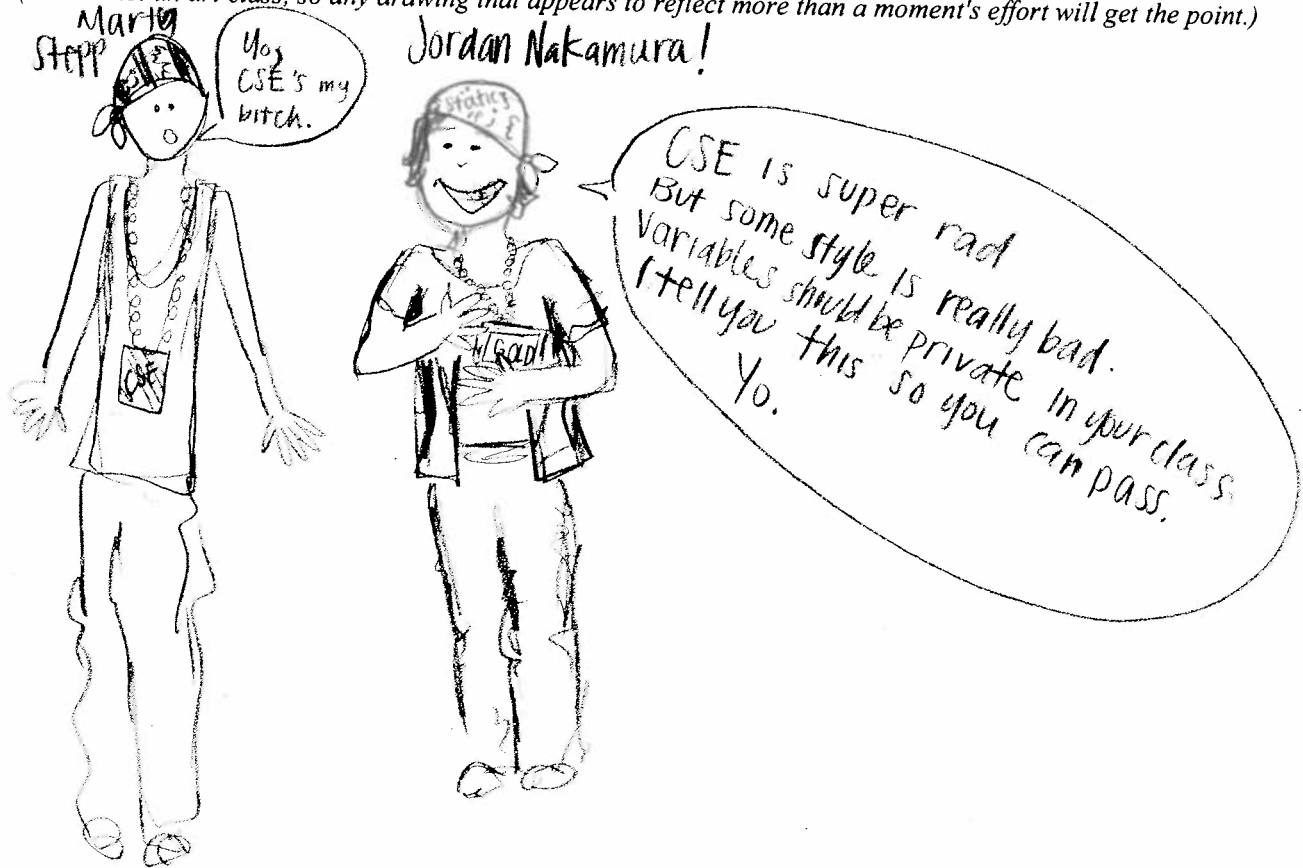 an art class, so any drawing that appears to reflect more than a moment's effort will get the point.)
Marty
Stepp
Yo,
CSE's my
bitch.
CSE
Jordan Nakamura!
static
" ; {
GOLD
CSE is super rad
But some style is really bad.
Variables should be private in your class
I tell you this so you can pass.
Yo.